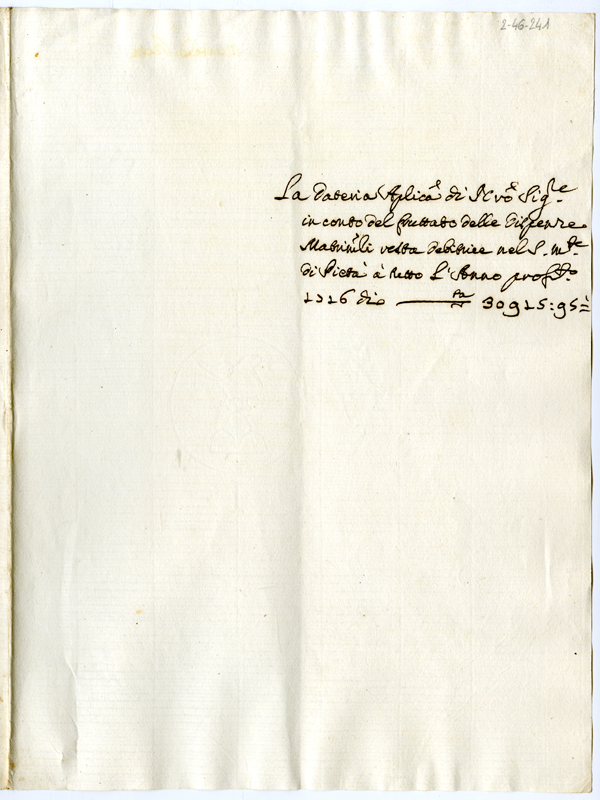 2-46-241
La Dateria Aplica di Nro Sige
in conto del fruttato delle Dispenze
Matrimli resta debitrice nel S. Mte
di Pietà à tutto L'Anno
1716 di 30915:95